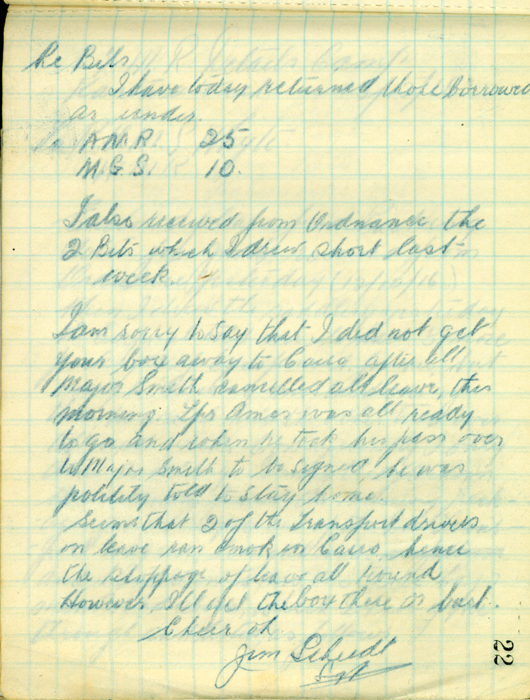 Re Bits.
I have today returned those borrowed
as under.
A.M.R. 25
M.G.S. 10.
I also received from Ordnance the
2 Bits which I drew short last
week.
I am sorry to say that I did not get
your box away to Cairo after all
Major Smith cancelled all leave, this
morning. Amos was all ready
to go and when he took his pass over
to Major Smith to be signed he was
politily told to stay home.
Seems that 2 of the Transport drivers
on leave ran amok in Cairo hence
the stoppage of leave all round
However I'll get the box there or bust.
Cheer oh.
Jim
Sgt
22